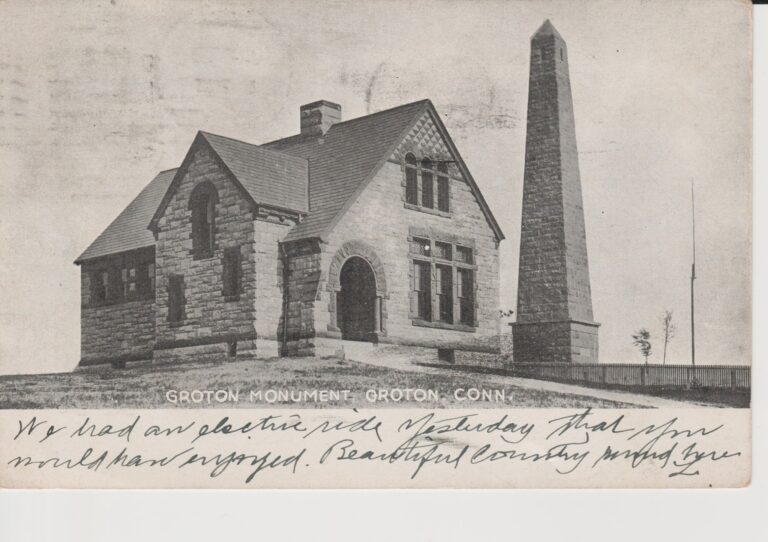 GROTON MONUMENT, GROTON, CONN.
We had an electric ride Yesterday that you
would have enjoyed. Beautiful Country round here
L